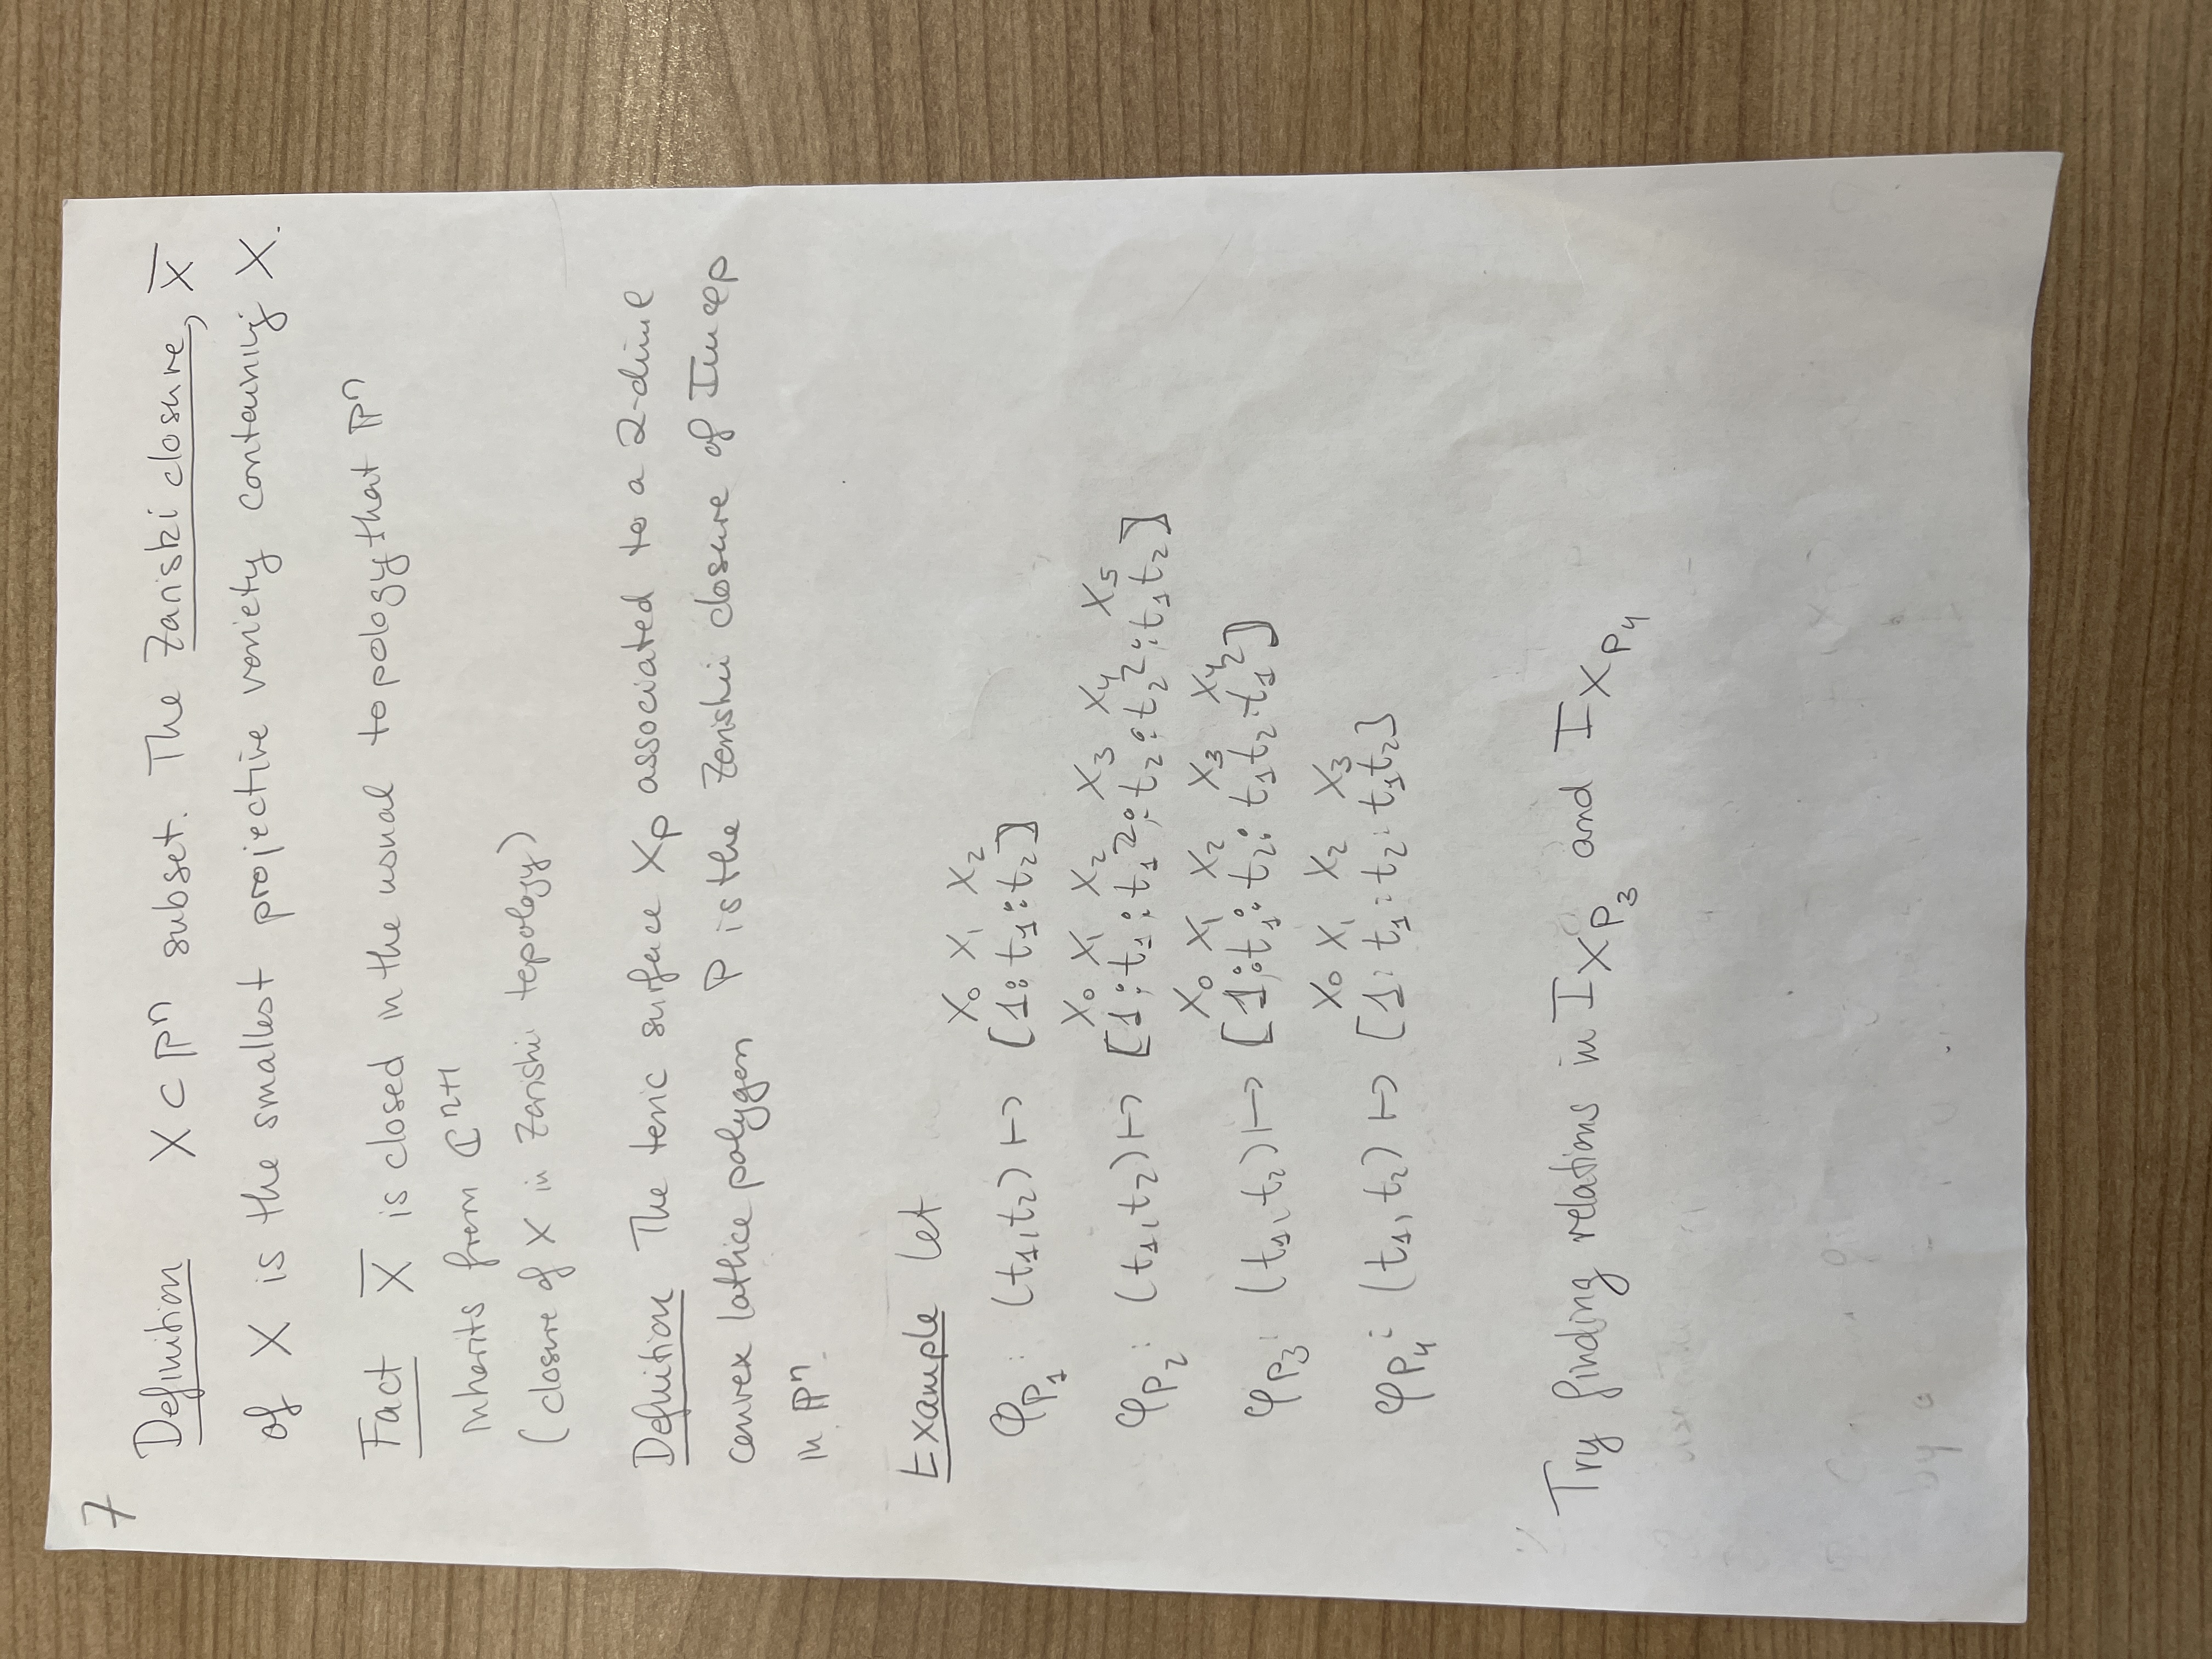 7
Definition X ⊂ ℙⁿ subset. The Zariski closure, X̅
of X is the smallest projective variety containing X.
Fact X̅ is closed in the usual topology that ℙⁿ
inherits from ℂⁿ⁺¹
(closure of X in Zariski topology)
Definition The toric surface X_P associated to a 2-dim'l
convex lattice polygon P is the Zariski closure of Im φ_P
in ℙⁿ.
Example Let
X₀ X₁ X₂
φ_P₁: (t₁,t₂) ↦ [1:t₁:t₂]
X₀ X₁ X₂ X₃ X₄ X₅
φ_P₂: (t₁,t₂) ↦ [1:t₁:t₁²:t₂:t₂²:t₁t₂]
X₀ X₁ X₂ X₃ X₄
φ_P₃: (t₁,t₂) ↦ [1:t₁:t₂:t₁t₂:t₁²]
X₀ X₁ X₂ X₃
φ_P₄: (t₁,t₂) ↦ [1:t₁:t₂:t₁t₂]
Try finding relations in I_X_P₃ and I_X_P₄